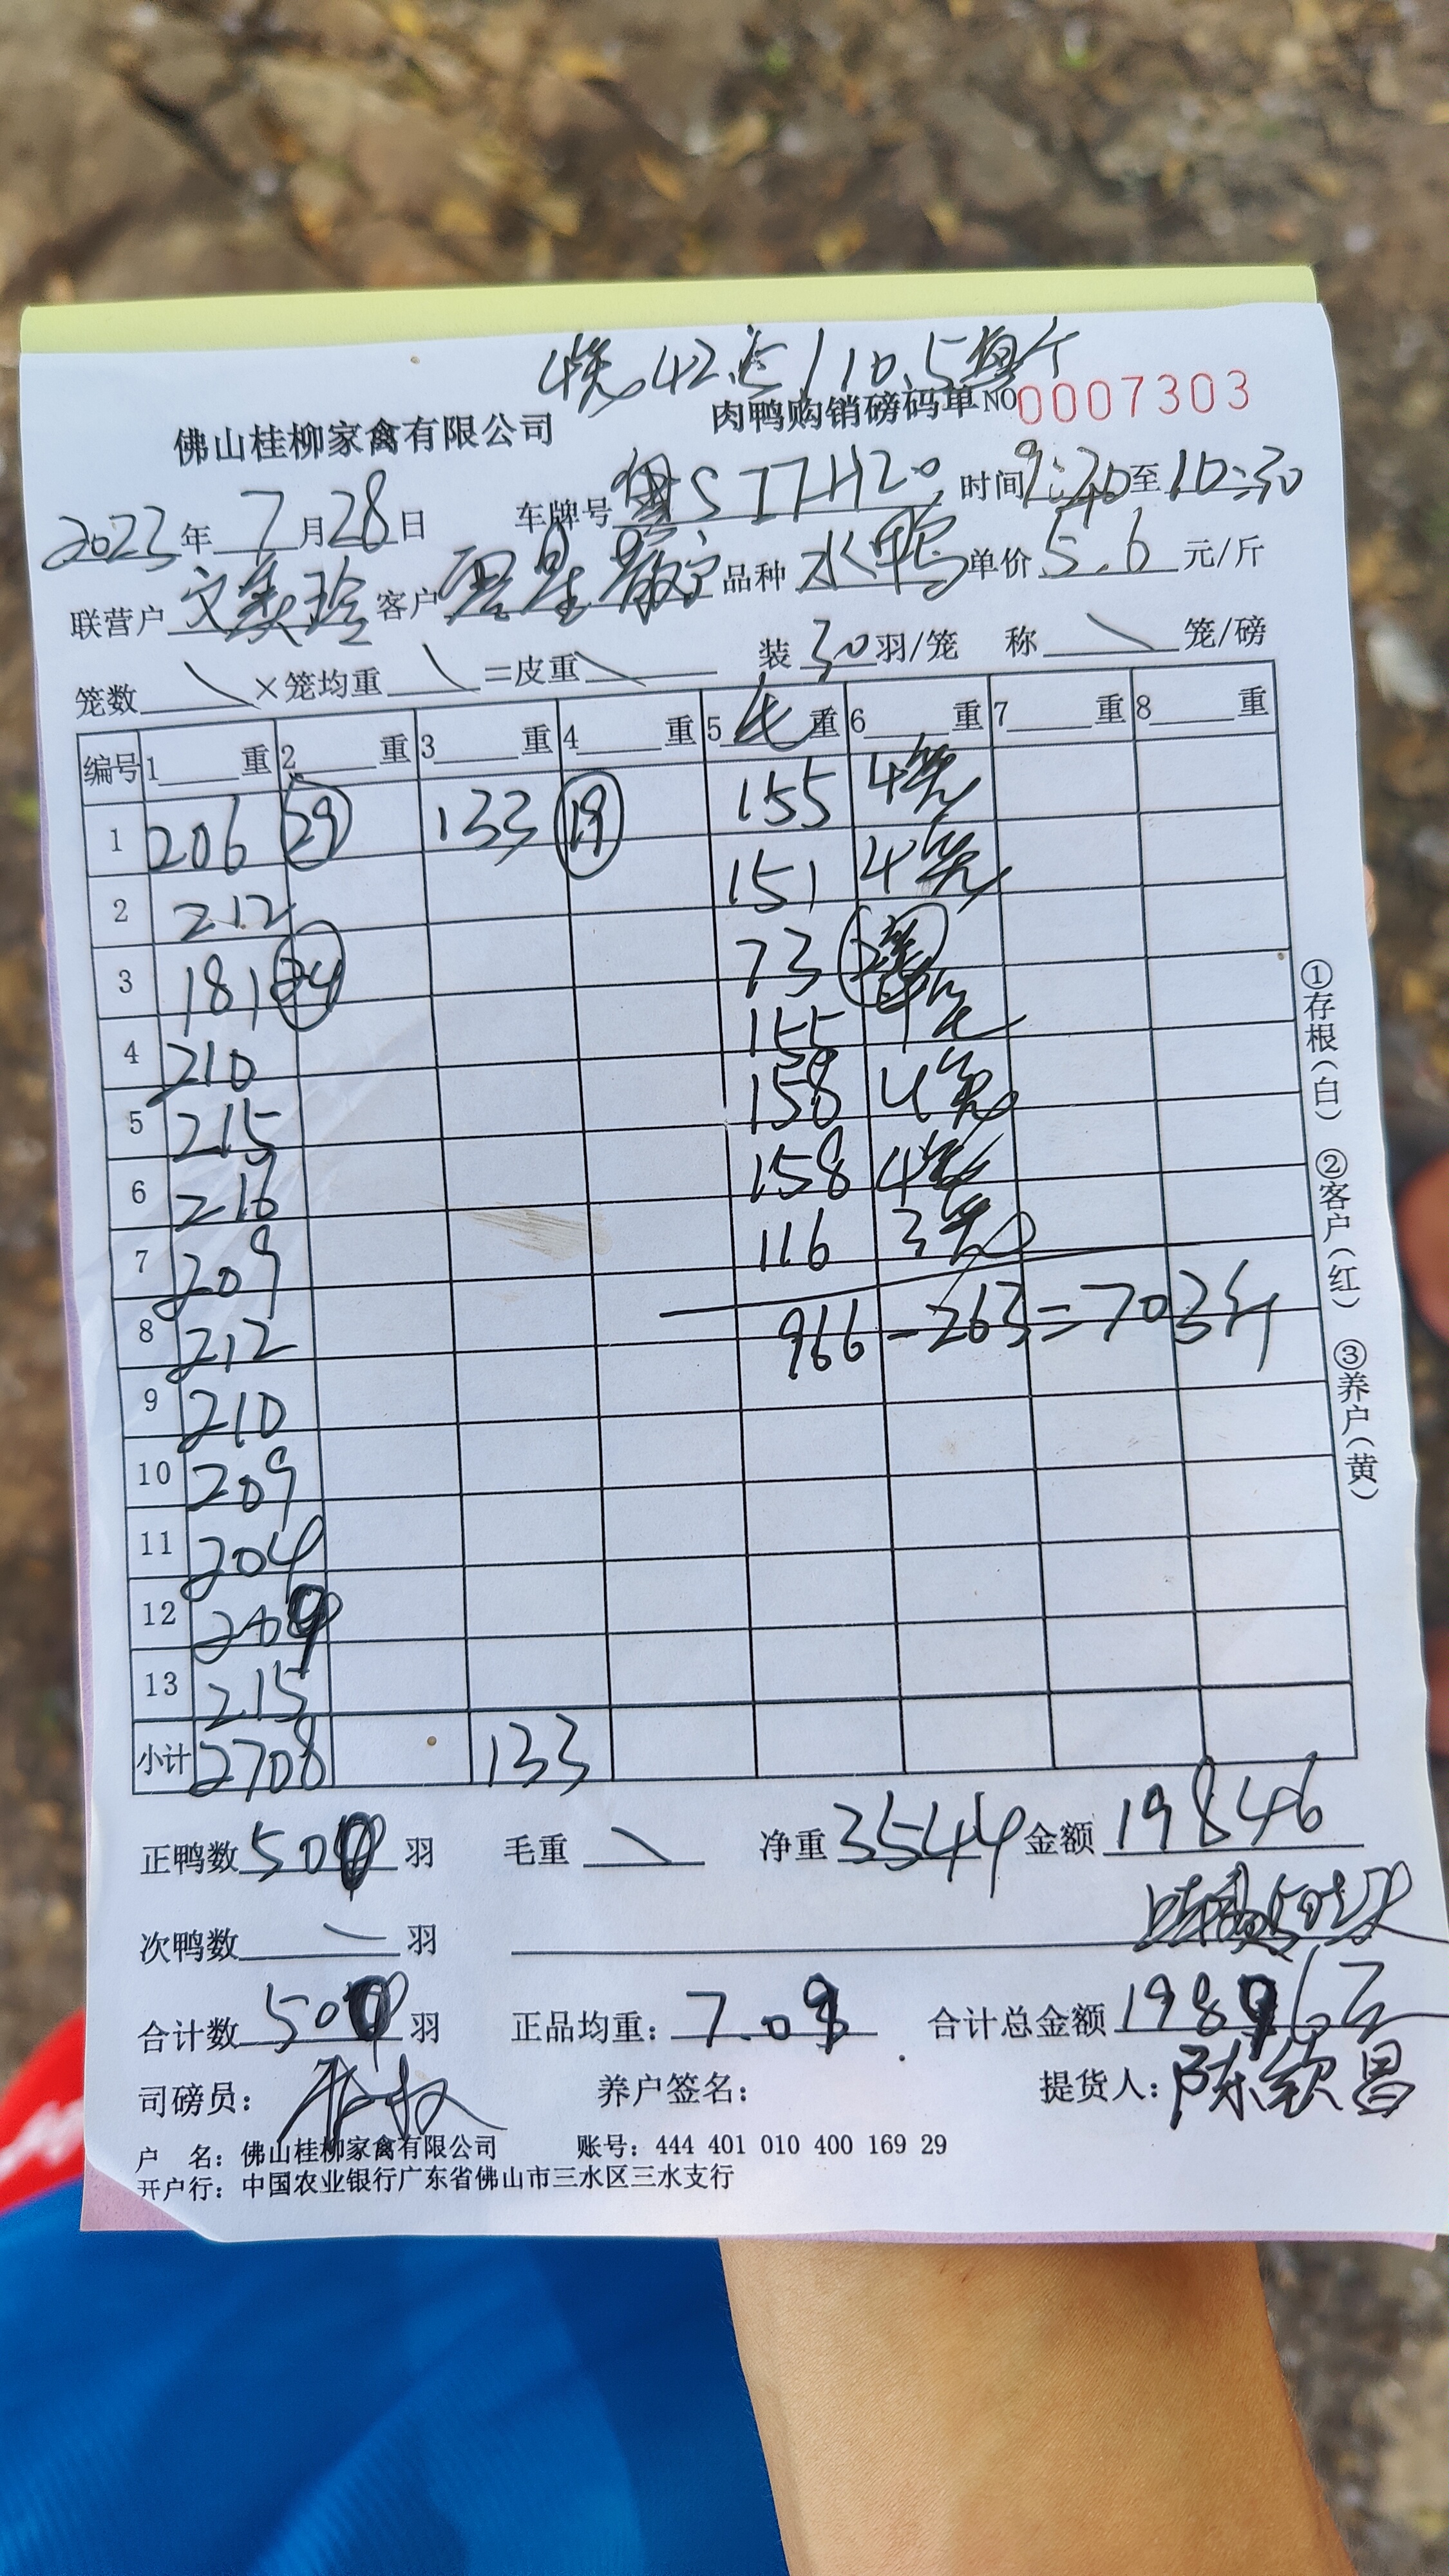 4笼42斤/10.5每个
佛山桂柳家禽有限公司 肉鸭购销磅码单 NO 0007303
2023年7月28日 车牌号 粤S 77H20 时间 9:20 至 10:30
联营户 文美玲 客户 散户 品种 水鸭 单价 5.6 元/斤
笼数 \ ×笼均重 \ =皮重 \ 装 30 羽/笼 称 \ 笼/磅
编号 1 重 2 重 3 重 4 重 5 毛 重 6 重 7 重 8 重
1 206 29 133 19 155 4笼
2 212 151 4笼
3 181 24 73 2笼
4 210 155 4笼
5 215 158 4笼
6 216 158 4笼
7 209 116 3笼
8 212 966-263=703斤
9 210
10 209
11 204
12 209
13 215
小计 2708 133
①存根(白) ②客户(红) ③养户(黄)
正鸭数 500 羽 毛重 \ 净重 3544 金额 19846
次鸭数 \ 羽
合计数 500 羽 正品均重: 7.09 合计总金额 19896元
司磅员: 养户签名: 提货人: 陈钦昌
户 名: 佛山桂柳家禽有限公司 账号: 444 401 010 400 169 29
开户行: 中国农业银行广东省佛山市三水区三水支行